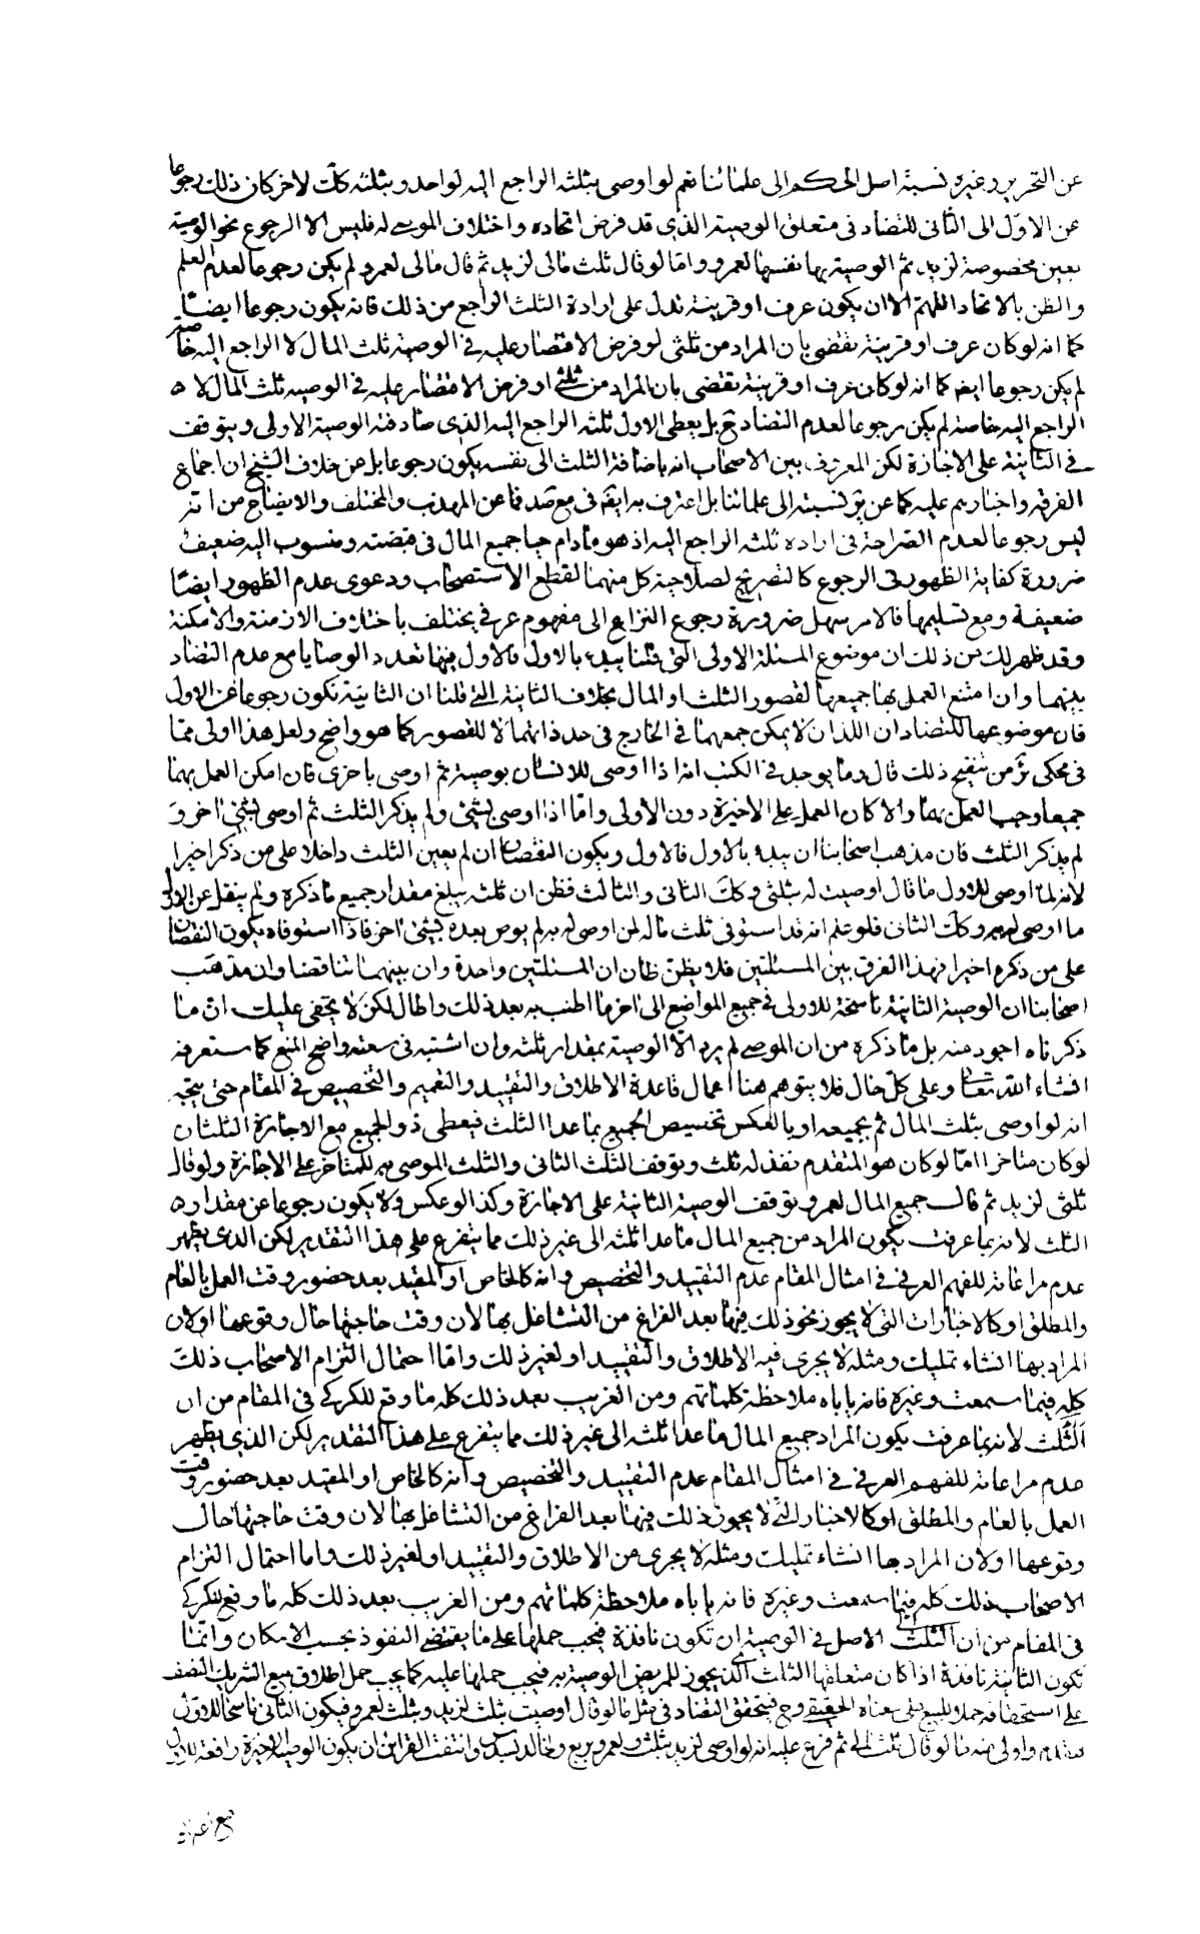 عن التحرير وغيره نسبة اصل الحكم الى علمائنا نعم لو اوصى بثلثه الراجع اليه لواحد وبثلثه كك لاخر كان ذلك رجوعا
عن الاوّل الى الثانى للتضاد فى متعلق الوصية الذى قد فرض اتحاده واختلاف الموصى له فليس الا الرجوع نحو الوصية
بعين مخصوصة لزيد ثم الوصية بها نفسها لعمرو واما لو قال ثلث مالى لزيد ثم قال مالى لعمرو لم يكن رجوعا لعدم العلم
والظن بالاتحاد اللهم الا ان يكون عرف او قرينة تدل على ارادة الثلث الراجع من ذلك فانه يكون رجوعا ايضا
كما انه لو كان عرف او قرينة تقضى بان المراد من ثلثى لو فرض الاقتصار عليه فى الوصية ثلث المال لا الراجع اليه خاصة
لم يكن رجوعا ايضا كما انه لو كان عرف او قرينة تقضى بان المراد من ثلثى او فرض الاقتصار عليه فى الوصية ثلث المال لا
الراجع اليه خاصة لم يكن رجوعا لعدم التضاد ح بل يعطى الاول ثلثه الراجع اليه الذى صادفته الوصية الاولى ويتوقف
فى الثانية على الاجازة لكن المعروف بين الاصحاب انه باضافة الثلث الى نفسه يكون رجوعا بل عن خلاف الشيخ ان اجماع
الفرقة واخبارهم عليه كما عن نسبته الى علمائنا بل اعترف به ايضا فى مع صد فما عن المهذب والمختلف والايضاح من انه
ليس رجوعا لعدم الصراحة فى ارادة ثلثه الراجع اليه اذ هو مادام حيا جميع المال فى قبضته ومنسوب اليه ضعيف
ضرورة كفاية الظهور فى الرجوع كالتصريح لصلاحية كل منهما لقطع الاستصحاب ودعوى عدم الظهور ايضا
ضعيفة ومع تسليمها فالامر سهل ضرورة رجوع النزاع الى مفهوم عرفى يختلف باختلاف الازمنة والامكنة
وقد ظهر لك من ذلك ان موضوع المسئلة الاولى التى قلنا يبدء بالاول فالاول فيها تعدد الوصايا مع عدم التضاد
بينهما وان امتنع العمل بها جميعها لقصور الثلث او المال بخلاف الثانية التى قلنا ان الثانية تكون رجوعا عن الاول
فان موضوعها المتضادان اللذان لا يمكن جمعهما فى الخارج فى حد ذاتهما لا للقصور كما هو واضح ولعل هذا اولى مما
فى محكى ئر من تنقيح ذلك قال وما يوجد فى الكتب انه اذا اوصى للانسان بوصية ثم اوصى باخرى فان امكن العمل بهما
جميعا وجب العمل بهما والا كان العمل على الاخيرة دون الاولى واما اذا اوصى بشئ ولم يذكر الثلث ثم اوصى بشئ اخر و
لم يذكر الثلث فان مذهب اصحابنا ان يبدء بالاول فالاول ويكون النقصان ان لم يعين الثلث داخلا على من ذكر اخيرا
لانه لما اوصى للاول ما قال اوصيت له بثلثى وكك الثانى والثالث فظن ان ثلثه يبلغ مقدار جميع ما ذكره ولم ينقل عن الاول
ما اوصى له به وكك الثانى فلو علم انه قد استوفى ثلث ماله لمن اوصى له به لم يوص بعده بشئ اخر فاذا استوفاه يكون النقصان
على من ذكره اخيرا فهذا الفرق بين المسئلتين فلا يظن ظان ان المسئلتين واحدة وان بينهما تناقضا وان مذهب
اصحابنا ان الوصية الثانية ناسخة للاولى فى جميع المواضع الى اخر ما اطنب به بعد ذلك واطال لكن لا يخفى عليك ان ما
ذكرناه اجود منه بل ما ذكره من ان الموصى لم يرد الا الوصية بمقدار ثلثه وان اشتبه فى سعته واضح المنع كما ستعرفه
انشاء الله تعالى وعلى كل حال فلا يتوهم هنا اعمال قاعدة الاطلاق والتقييد والتعميم والتخصيص فى المقام حتى يتجه
انه لو اوصى بثلث المال ثم بجميعه او بالعكس تخصيص الجميع بما عدا الثلث فيعطى ذو الجميع مع الاجازة الثلثان
لو كان متاخرا اما لو كان هو المتقدم نفذ له ثلث وتوقف الثلث الثانى والثلث الموصى به للمتاخر على الاجازة ولو قال
ثلثى لزيد ثم قال جميع المال لعمرو توقف الوصية الثانية على الاجازة وكذا لو عكس ولا يكون رجوعا عن مقدار
الثلث لانه بما عرفت يكون المراد من جميع المال ما عدا ثلثه الى غير ذلك مما يتفرع على هذا التقدير لكن الذى يظهر
عدم مراعاته للفهم العرفى فى امثال المقام عدم التقييد والتخصيص وانه كالخاص او المقيد بعد حضور وقت العمل بالعام
والمطلق او كالاخبارات التى لا يجوز نحو ذلك فيها بعد الفراغ من التشاغل بها لان وقت حاجتها حال وقوعها او لان
المراد بها انشاء تمليك ومثله لا يجرى فيه الاطلاق والتقييد او لغير ذلك واما احتمال التزام الاصحاب ذلك
كله فيما سمعت وغيره فانه ياباه ملاحظة كلماتهم ومن الغريب بعد ذلك كله ما وقع للكركى فى المقام من ان
الثلث لانه بما عرفت يكون المراد جميع المال ما عدا ثلثه الى غير ذلك مما يتفرع على هذا التقدير لكن الذى يظهر
عدم مراعاته للفهم العرفى فى امثال المقام عدم التقييد والتخصيص وانه كالخاص او المقيد بعد حضور وقت
العمل بالعام والمطلق او كالاخبار التى لا يجوز ذلك فيها بعد الفراغ من التشاغل بها لان وقت حاجتها حال
وقوعها او لان المراد بها انشاء تمليك ومثله لا يجرى من الاطلاق والتقييد او لغير ذلك واما احتمال التزام
الاصحاب ذلك كله فيما سمعت وغيره فانه ياباه ملاحظة كلماتهم ومن الغريب بعد ذلك كله ما وقع للكركى
فى المقام من ان الثلث الاصل فى الوصية ان تكون نافذة فيجب حملها على ما يقتضى النفوذ بحسب الامكان وانما
تكون الثانية نافذة اذا كان متعلقها الثلث الذى يجوز للمريض الوصية به فيجب حملها عليه كما يجب حمل اطلاق بيع الشريك النصف
على استحقاقه حملا للبيع على معناه الحقيقى وح فيتحقق التضاد فى مثل ما لو قال اوصيت بثلث لزيد وبثلث لعمرو فيكون الثانى ناسخا للاول
واولى منه ما لو قال ثلث مالى ثم فرع عليه انه لو اوصى لزيد بثلث ولعمرو بربع ولخالد بسدس وانتفت القرائن ان يكون الوصية الاخيرة رافعة للاولى